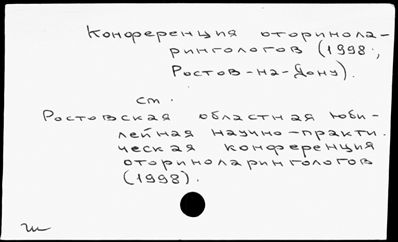 Конференция оторинола-
рингологов (1998.,
Ростов-на-Дону).
см.
Ростовская областная юби-
лейная научно-практи.
ческая конференция
оториноларингологов
(1998).